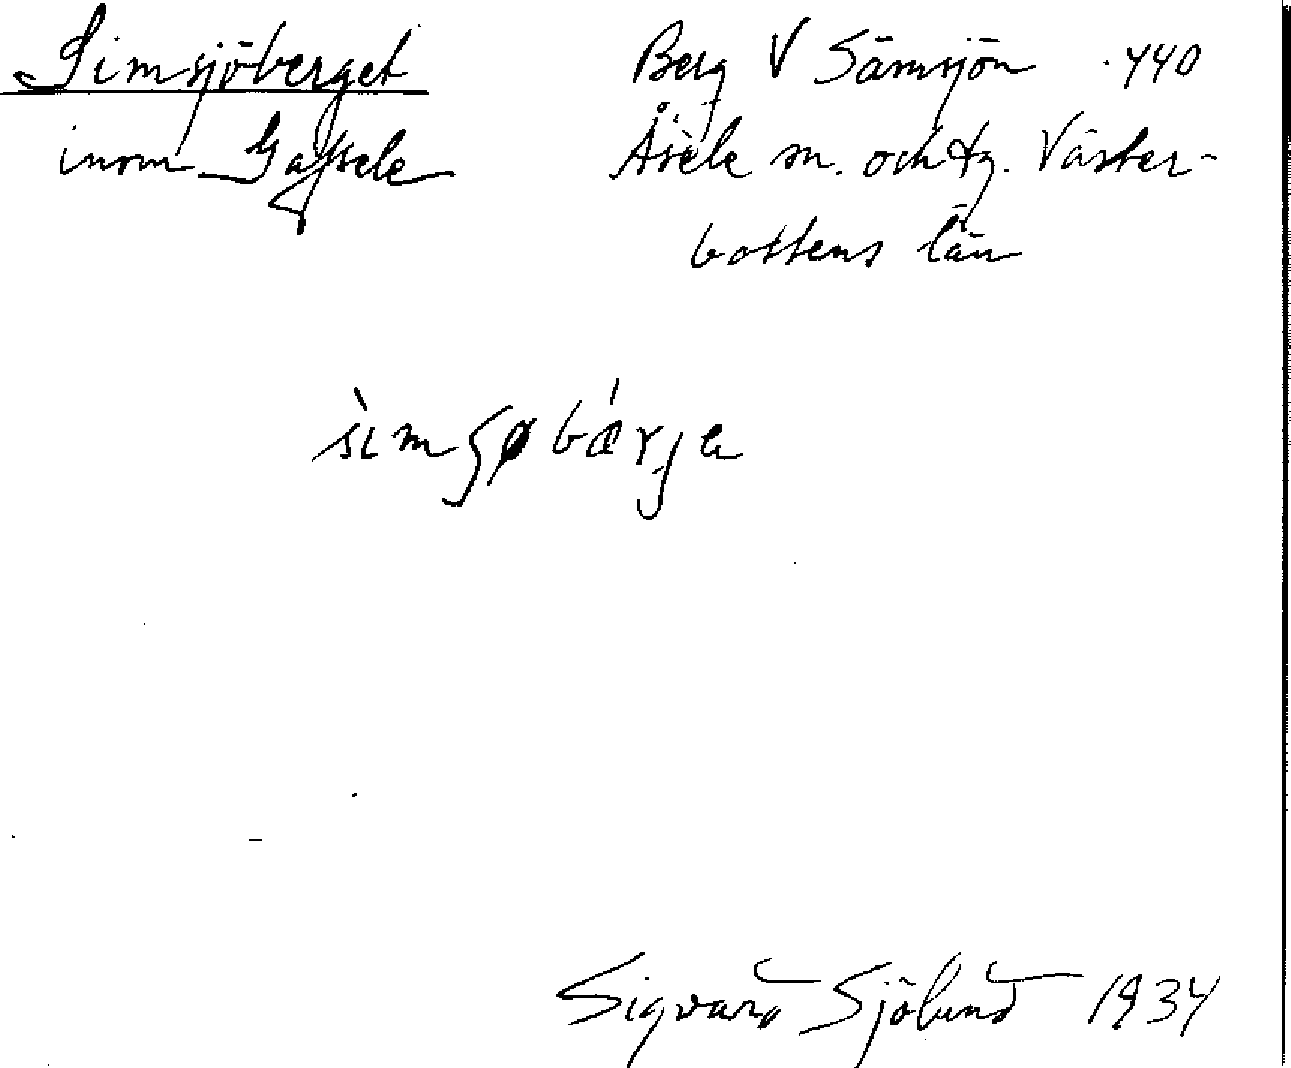 Simsjöberget
inom Gafsele
Berg V Sämsjön 440
Åsele sn. och tg. Väster-
bottens län
sìmʂøbǽrja
Sigvard Sjölund 1934